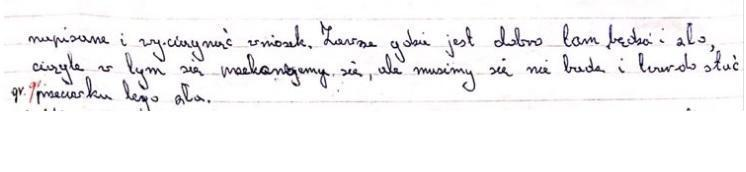 napisane i wyciągnąć wniosek. Zawsze gdzie jest dobro tam będzie i zło,
ciągle w tym się przekonujemy się, ale musimy się nie i twardo stać
gr. przeciwku tego zła.